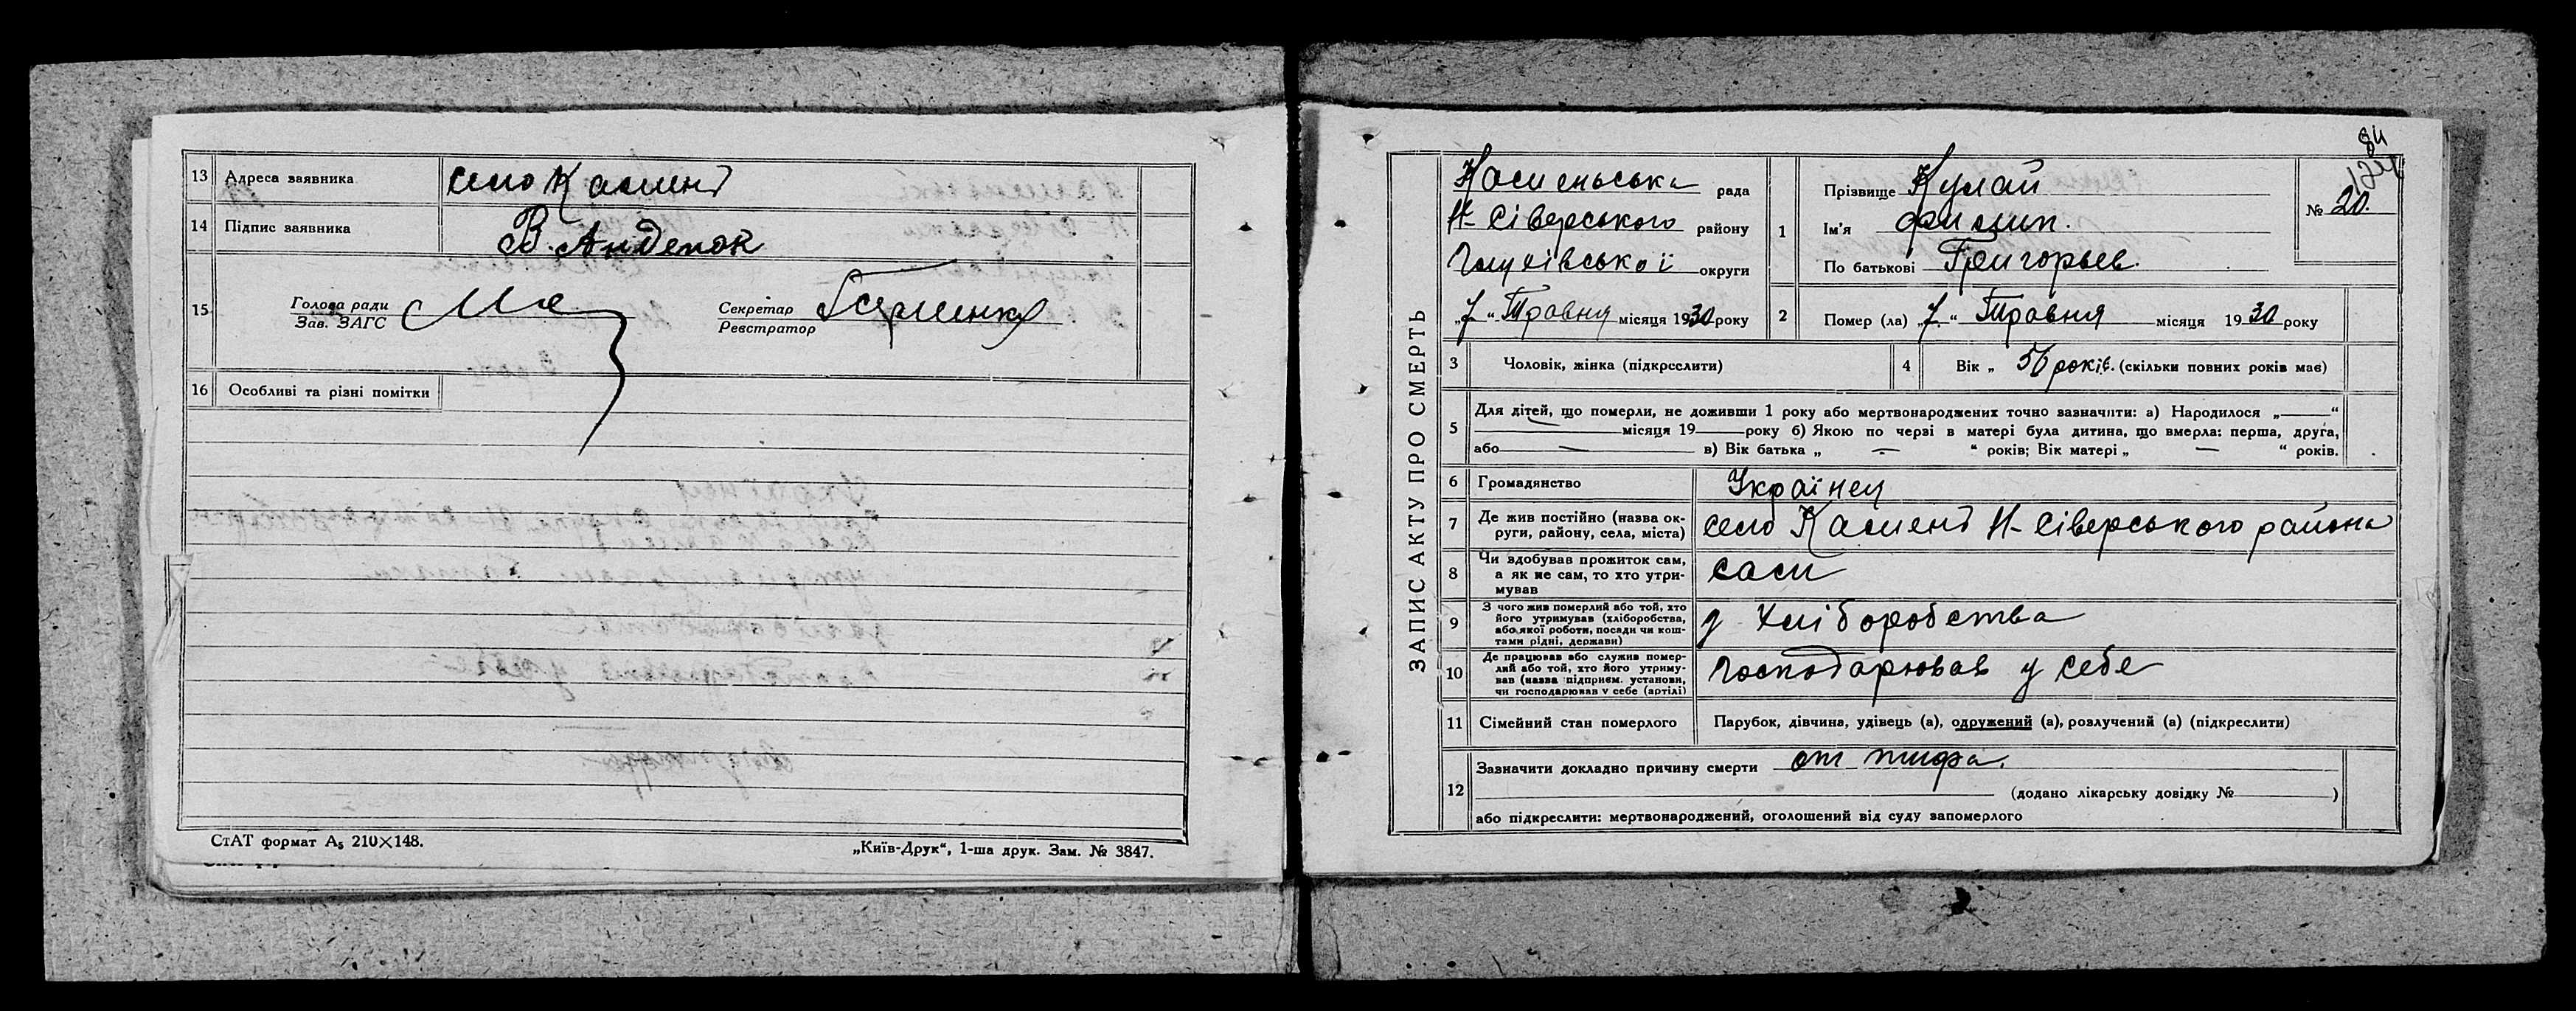 13 Адреса заявника село Камень
14 Підпис заявника В. Анделок
15 Голова ради
Зав. ЗАГС
Секретар
Реєстратор
16 Особливі та різні помітки
СтАТ формат А₅ 210×148.
„Київ-Друк“, 1-ша друк. Зам. № 3847.
84
ЗАПИС АКТУ ПРО СМЕРТЬ
Каменьська рада
Н-Сіверського району
Глухівської округи
„7“ Травня місяця 1930 року
1 Прізвище Кулай
Ім'я Филип.
По батькові Григорьев.
№ 20.
2 Помер (ла) „7.“ Травня місяця 1930 року
3 Чоловік, жінка (підкреслити)
4 Вік „ 56 років. (скільки повних років має)
5 Для дітей, що померли, не доживши 1 року або мертвонароджених точно зазначити: а) Народилося „—“
— місяця 19— року б) Якою по черзі в матері була дитина, що вмерла: перша, друга,
або — в) Вік батька „ — “ років; Вік матері „ — “ років.
6 Громадянство Українец
7 Де жив постійно (назва ок-
руги, району, села, міста) село Камень Н-Сіверського района
8 Чи здобував прожиток сам,
а як не сам, то хто утри-
мував сам
9 З чого жив померлий або той, хто
його утримував (хліборобства,
або якої роботи, посади чи кош-
тами рідні, держави) з хліборобства
10 Де працював або служив помер-
лий або той, хто його утриму-
вав (назва підприєм. установи,
чи господарював у себе (артілі) господарював у себе
11 Сімейний стан померлого Парубок, дівчина, удівець (а), одружений (а), розлучений (а) (підкреслити)
12 Зазначити докладно причину смерти от тифа.
(додано лікарську довідку № )
або підкреслити: мертвонароджений, оголошений від суду запомерлого